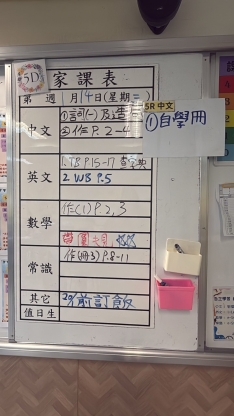 5D
家課表
第 週 1月14日(星期二)
中文 ①詞(一)及造句
②作P.2-4
5R 中文
①自學冊
英文 1. TB P.15-17
2. WB P.5
數學 作(1) P.2,3
常識 作(冊3) P.8-11
其它 20/1前訂飯
值日生